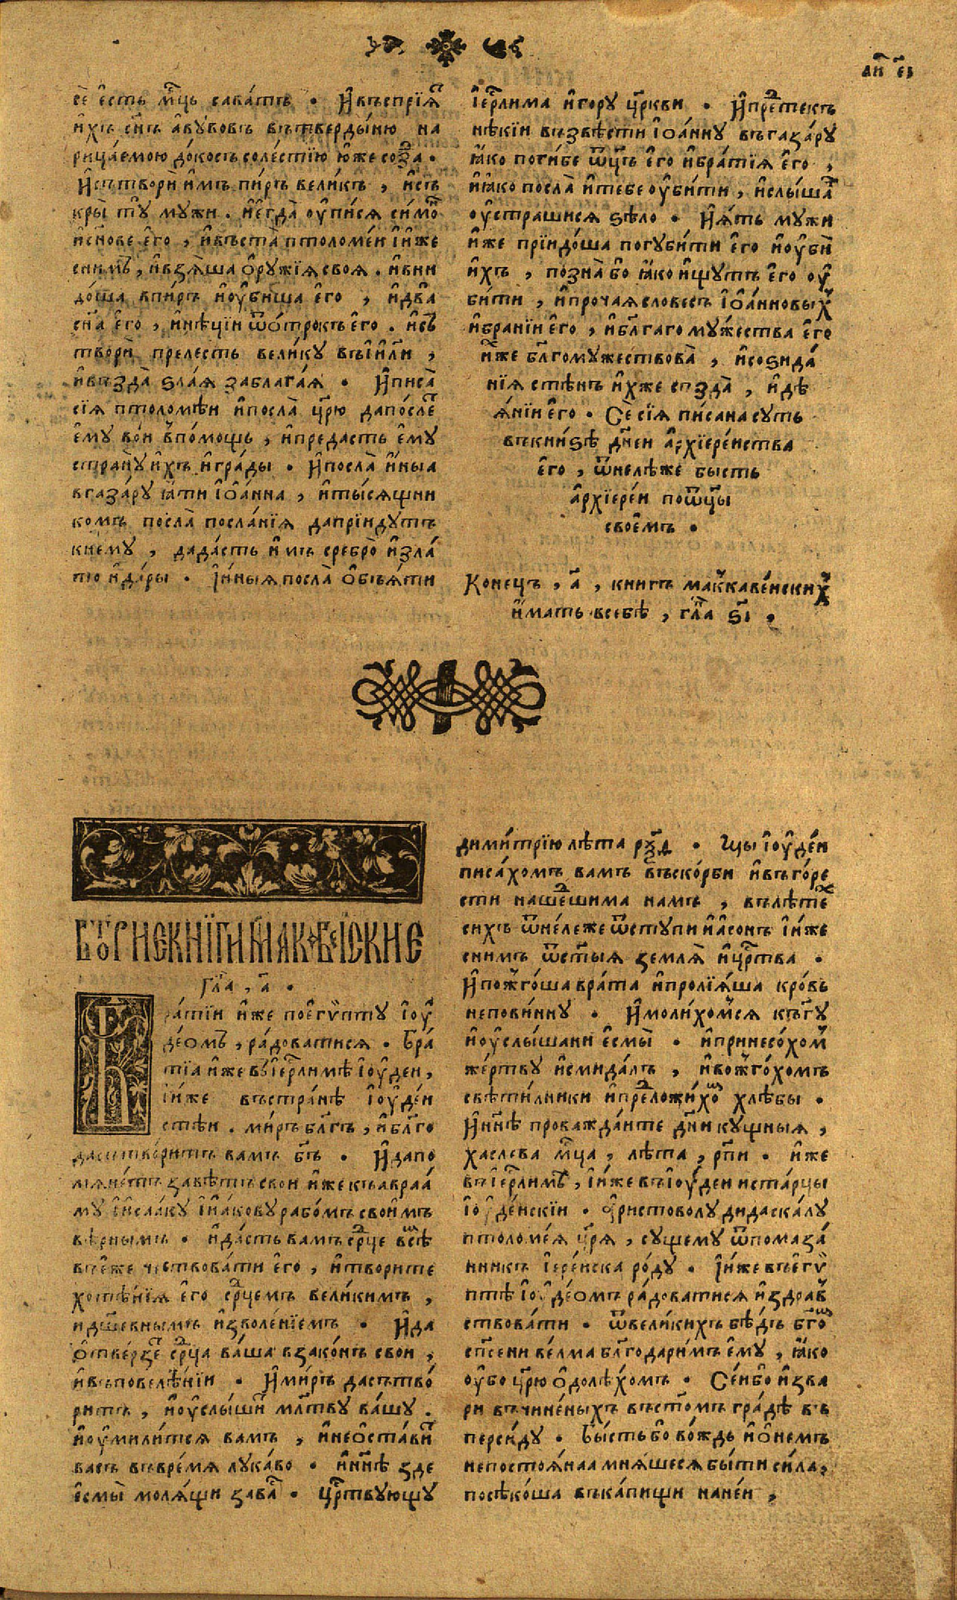 се́ е҆сть мц҃ъ саватъ . И҆въспрїѧ̀
и҆хъ сн҃ъ а҆вувовъ вътвердыню на
рица́емою до́косъ солестїю ю҆же созда̀ .
И҆сътвори̑ и҆мъ пиръ великъ , и҆съ
кры̀ тꙋ̀ мужи . и҆е҆гда̀ оу҆пи́сѧ симо́нъ
и҆сн҃ове е҆го̀ , и҆въста̀ птоломе́и и҆и҆же
сни́мъ , и҆взѧ́ша о҆рꙋжїѧ своѧ . и҆вни
до́ша впиръ и҆оу҆би́ша е҆го̀ , и҆два̀
сн҃а е҆го̀ , и҆нѣ́цїи ѿо́трокъ е҆го . и҆съ
твори̑ прелесть велику въі҆и҃ли ,
и҆възда̀ ѕла́ѧ заблага́ѧ . И҆писа̀
сїѧ птоломѣи и҆посла̀ цр҃ю дапо́слетъ
е҆мꙋ во́и впо́мощь , и҆предасть е҆мꙋ
странꙋ и҆хъ и҆гра́ды . И҆посла̀ и҆ныа
вгаза́рꙋ ꙗ҆ти і҆ѡа́нна , и҆ты́сѧщни
комъ посла̀ посла́нїѧ дапрїидꙋтъ
кнемꙋ , дада́сть и҆мъ сребро̀ и҆зла́
то и҆да́ры . И҆и҆ныѧ посла̀ ѡ҆б̾ѧ́ти
і҆ер҃лима и҆горꙋ цр҃кви . И҆пр҃етекъ
нѣ́кїи възвѣсти і҆ѡа́ннꙋ въгаза́рꙋ
ꙗ҆ко поги́бе ѿц҃ъ е҆го и҆бра́тїѧ е҆го ,
и҆ꙗ҆ко посла̀ и҆тебе оу҆би́ти , и҆слы́ша
оу҆страши́сѧ ѕѣло . И҆ꙗ҆тъ мꙋжи
и҆же прїидо́ша погꙋби́ти е҆го и҆оу҆би̑
и҆хъ , позна̀ бо ꙗ҆ко и҆щꙋтъ е҆го оу҆
би́ти , и҆прочаѧ словесъ і҆ѡа́нновыхъ
и҆бра́нїи е҆го , и҆бл҃гаго мꙋ́жества е҆го
и҆же бл҃гомꙋжествова̀ , и҆соѕида́
нїѧ стѣ́нъ и҆хже созда̀ , и҆дѣ
ѧ́нїи е҆го . Сѐ сїѧ пи́сана сꙋть
въкни́ѕѣ дн҃еи а҆рхїере́иства
е҆го , ѿнелѣже бысть
а҆рхїере́и поѿц҃ы
свое́мъ .
Конецъ , а҃ , книгъ мак̾кавеискихъ
и҆мать всебѣ , гл҃а ѕ҃і .
Гл҃а , а҃ .
ра́тїи и҆же пое҆гѵ́птꙋ і҆оу҆
де́омъ , ра́доватисѧ . Бра́
тїа и҆же въі҆ер҃лимѣ і҆оу҆деи ,
и҆и҆же въстра́нѣ і҆оу҆деи
стѣи . ми́ръ бл҃гъ , и҆бл҃го
да́сътвори́тъ вамъ бг҃ъ . И҆дапо
мѧне́тъ завѣ́тъ свои и҆же къавраа́
мꙋ и҆исаа́кꙋ и҆и҆а́ковꙋ рабо́мъ свои́мъ
вѣ́рнымъ . и҆да́сть вамъ ср҃це всѣ
въе́же чьствова́ти е҆го , и҆твори́те
хотѣ́нїѧ е҆го ср҃цемъ вели́кимъ ,
и҆дш҃евнымъ и҆зволе́нїемъ . И҆да
ѿверзе ср҃ца ва́ша взако́нъ свои ,
и҆въповелѣ́нїи . И҆ми́ръ дасътво́
ритъ , и҆оу҆слы́ши мл҃твꙋ ва́шꙋ .
и҆оу҆мили́тсѧ вамъ , и҆неоста́витъ
васъ въврéмѧ лꙋка́во . и҆нн҃ѣ зде
е҆смы̀ молѧ́щи завасъ . цр҃твꙋющꙋ
дими́трїю лѣта рѯ҃д . мы і҆оу҆де́и
писа́хомъ вамъ въско́рби и҆въго́ре
сти наше́дшима намъ , въ лѣте́хъ
сихъ ѿне́леже ѿстꙋпи и҆а́сонъ и҆и҆же
сни́мъ ѿст҃ыѧ землѧ̀ и҆цр҃тва .
И҆пожго́ша врата̀ и҆пролїѧ́ша кро́вь
непови́ннꙋ . И҆моли́хомсѧ къгꙋ
и҆оу҆слы́шани е҆смы̀ . и҆принесо́хомъ
же́ртвꙋ и҆семида́лъ , и҆вожго́хомъ
свѣти́лники и҆преложи́хомъ хлѣ́бы .
И҆нн҃ѣ прова́ждаите дн҃и кꙋщныѧ ,
хаслева мц҃а , лѣта , рп҃и . и҆же
въі҆ер҃лимѣ , и҆и҆же въі҆оу҆деи и҆ста́рцы
і҆оу҆де́искїи . а҆ристоволꙋ дидаска́лꙋ
птоломе́ѧ цр҃ѧ , сꙋщемꙋ ѿпомаза́
нникъ і҆ере́иска ро́дꙋ . И҆и҆же въе҆гѵ́
птѣ і҆оу҆де́омъ ра́доватисѧ и҆здрав
ствовати . ѿвели́кихъ бѣ́дъ бг҃омъ
сп҃сени ве́лма бл҃годари́мъ е҆мꙋ , ꙗ҆ко
оу҆бо цр҃ю ѡ҆долѣ́хомъ . Се́ибо и҆зва
ри въчине́ныхъ въсто́мъ гра́дѣ въ
перси́дꙋ . Бы́сть бо во́ждь и҆ѡ҆не́мъ
непостоѧ́наа мнѧ́щесѧ бы́ти си́ла ,
посѣко́ша въка́пищи нанеи ,